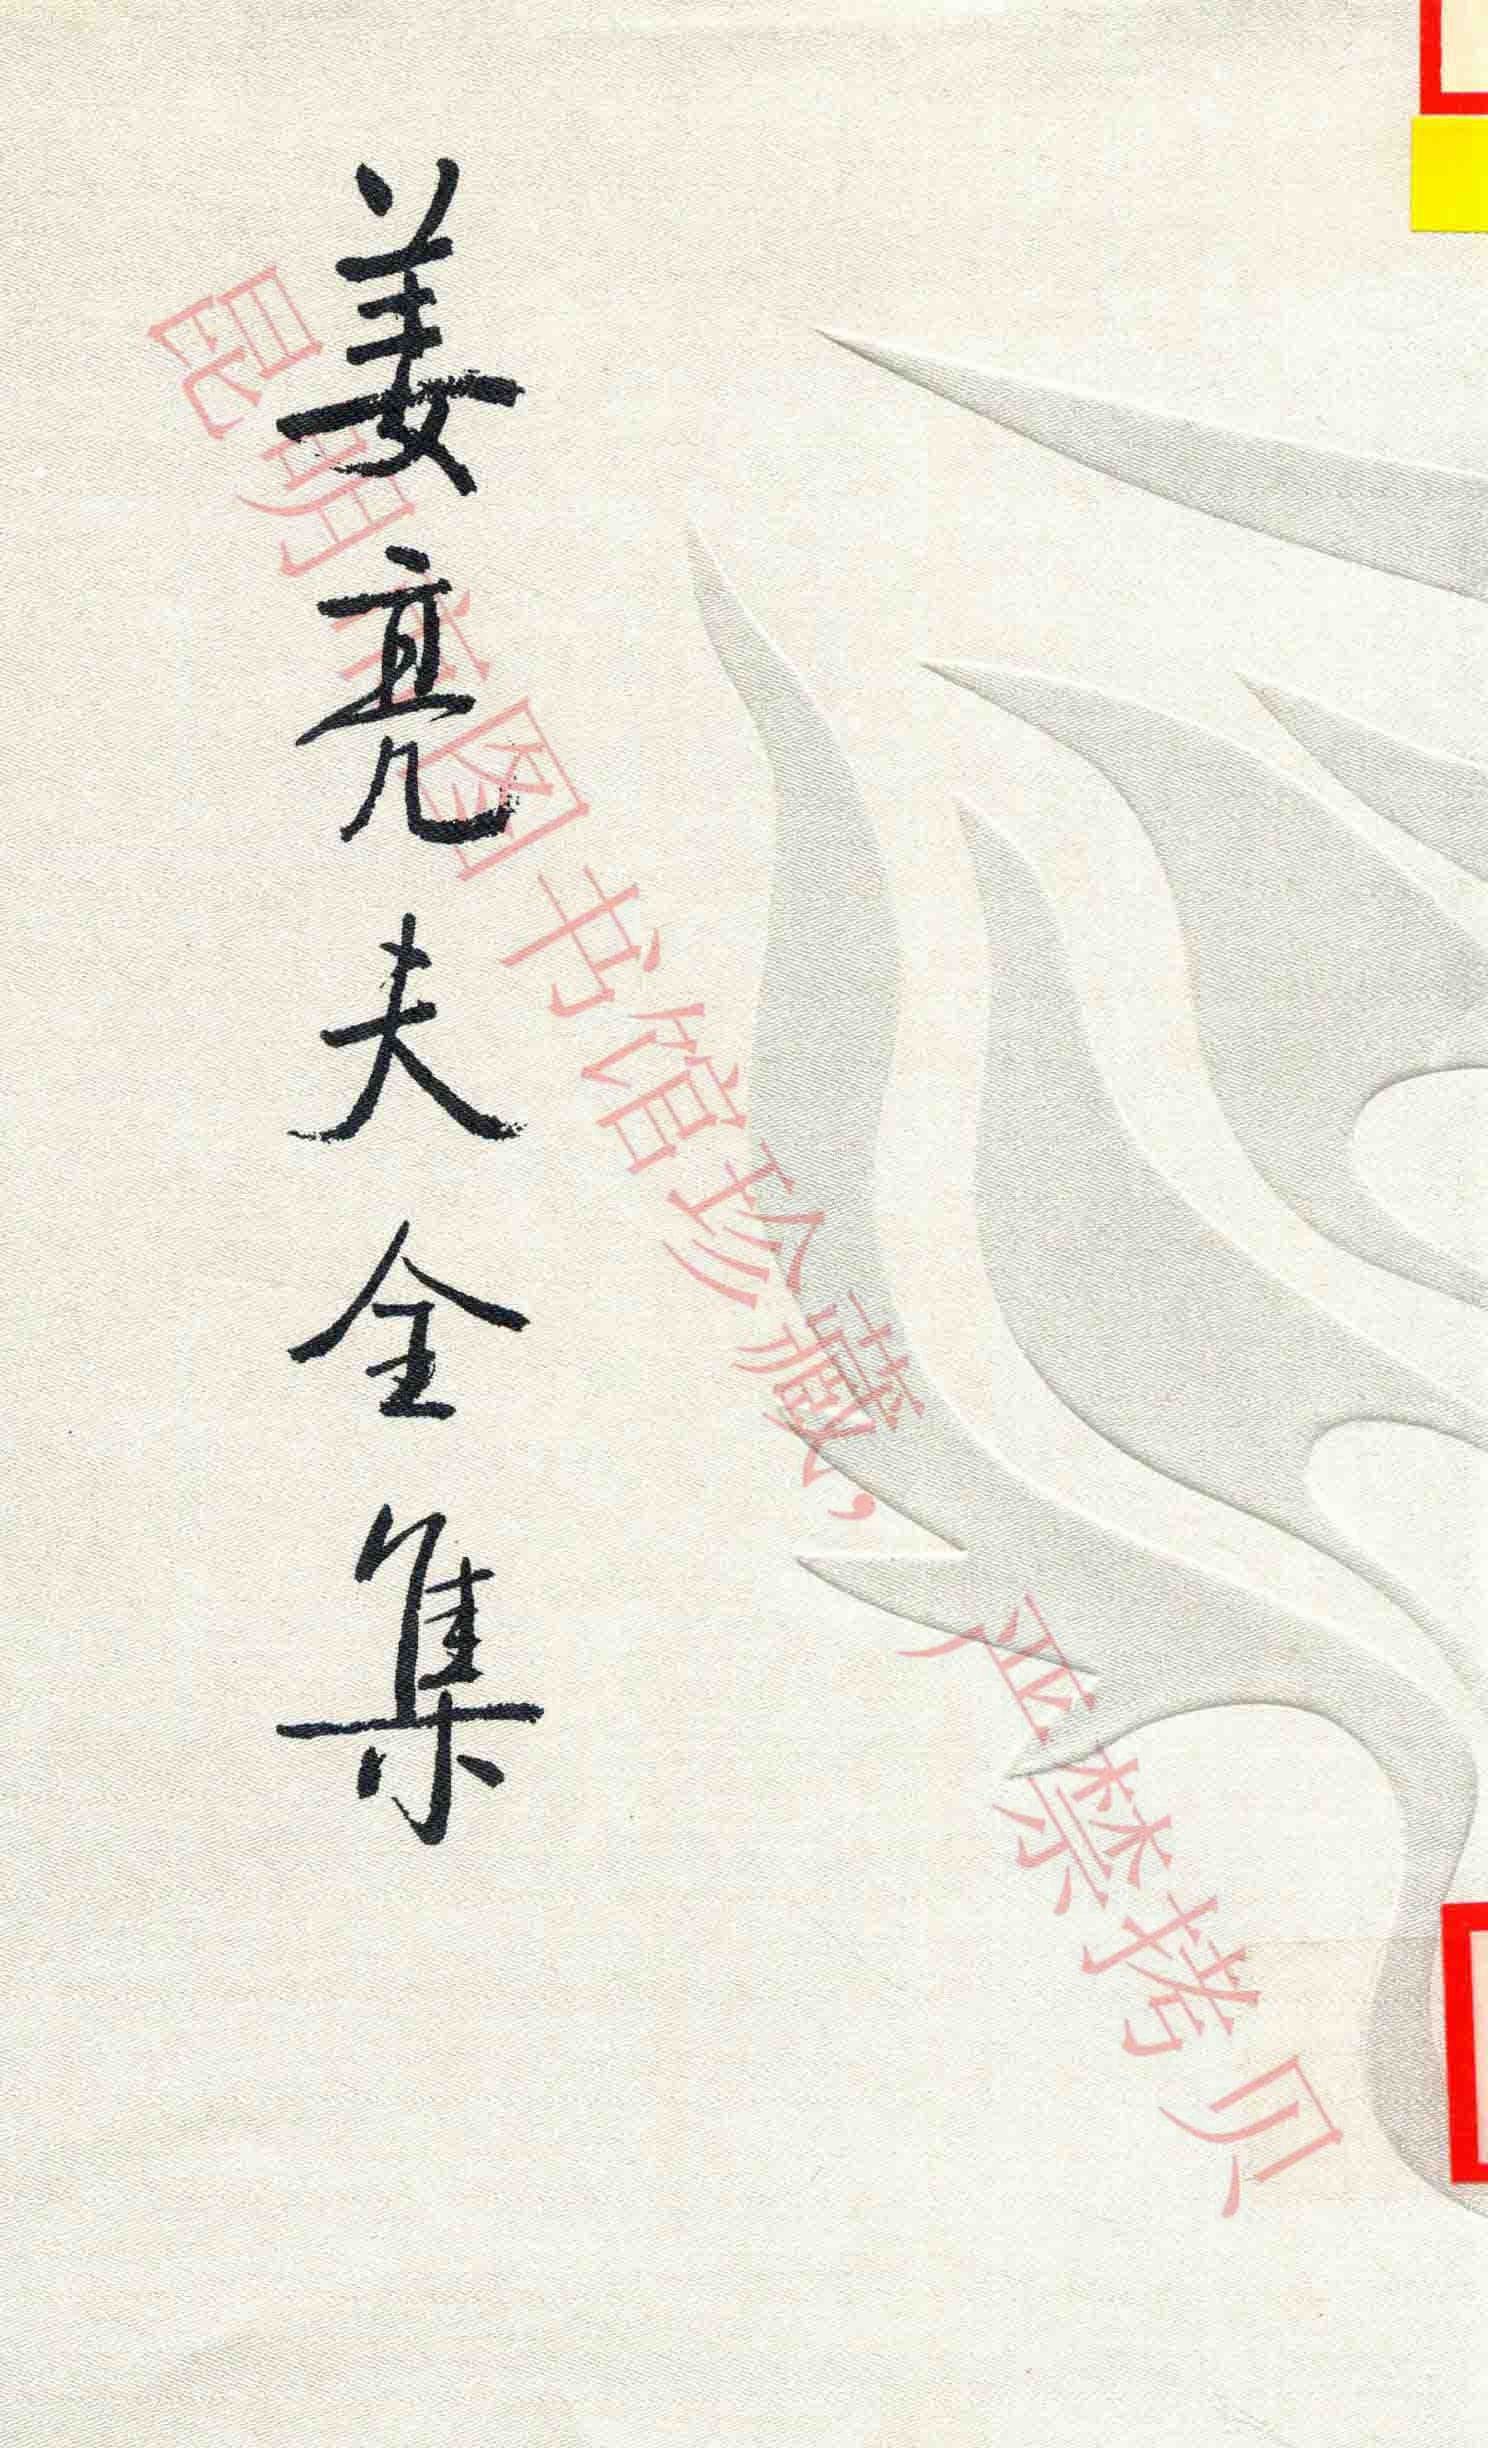 姜亮夫全集
昆明市图书馆珍藏，严禁拷贝